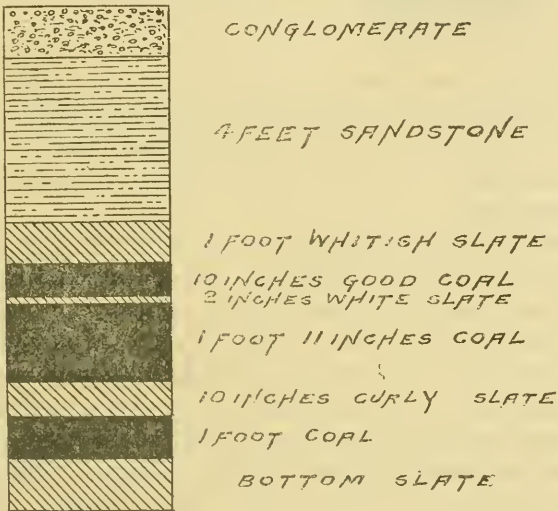 CONGLOMERATE
4 FEET SANDSTONE
1 FOOT WHITISH SLATE
10 INCHES GOOD COAL
2 INCHES WHITE SLATE
1 FOOT 11 INCHES COAL
10 INCHES CURLY SLATE
1 FOOT COAL
BOTTOM SLATE